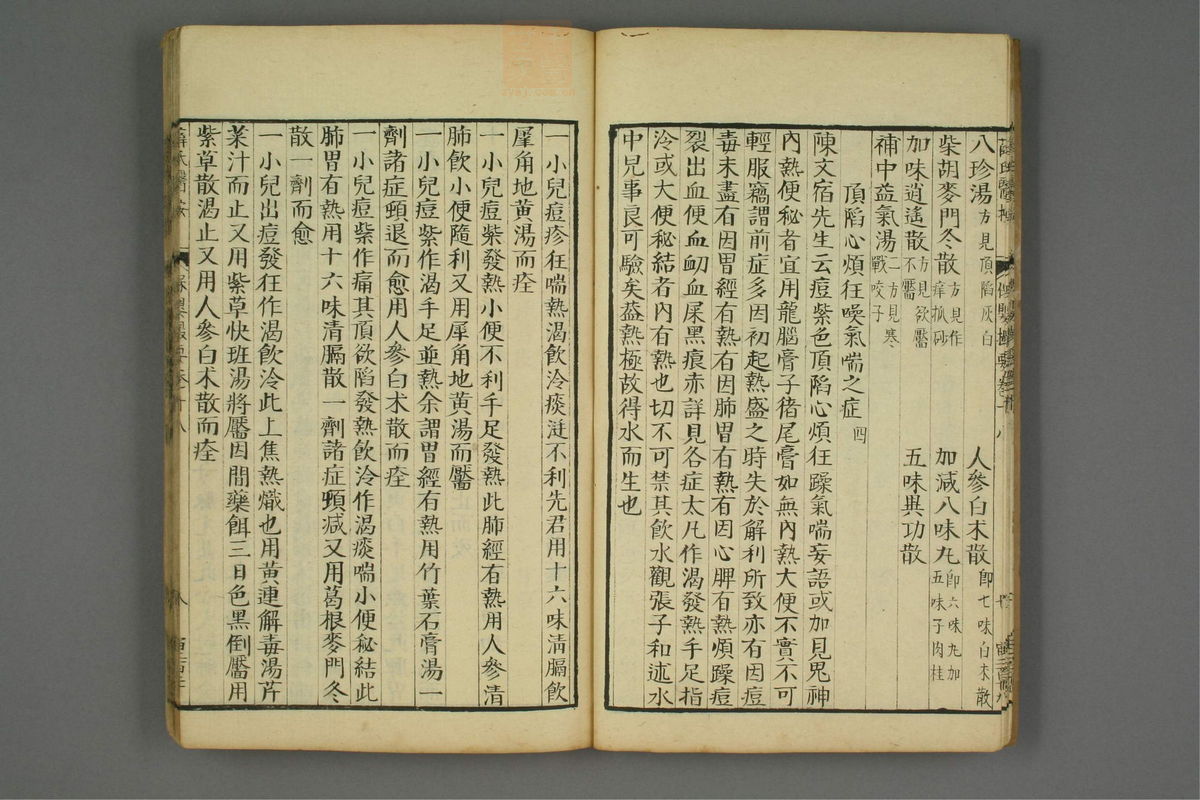 八珍湯方見頂陷灰白 人參白术散即七味白术散
柴胡麥門冬散方見作痒抓破 加減八味丸即六味丸加五味子肉桂
加味逍遙散方見欲靨不靨 五味異功散
補中益氣湯二方見寒戰咬牙
頂陷心煩狂喚氣喘之症四
陳文宿先生云痘紫色頂陷心煩狂躁氣喘妄語或加見鬼神
內熱便秘者宜用龍腦膏子猪尾膏如無內熱大便不實不可
輕服竊謂前症多因初起熱盛之時失於解利所致亦有因痘
毒未盡有因胃經有熱有因肺胃有熱有因心脾有熱煩躁痘
裂出血便血衂血屎黑痕赤詳見各症大凡作渴發熱手足指
冷或大便秘結者內有熱也切不可禁其飲水觀張子和述水
中兒事良可驗矣蓋熱極故得水而生也
一小兒痘疹狂喘熱渴飲冷痰涎不利先君用十六味清膈飲
犀角地黃湯而痊
一小兒痘紫發熱小便不利手足發熱此肺經有熱用人參清
肺飲小便隨利又用犀角地黃湯而靨
一小兒痘紫作渴手足並熱余謂胃經有熱用竹葉石膏湯一
劑諸症頓退而愈用人參白术散而痊
一小兒痘紫作痛其頂欲陷發熱飲冷作渴痰喘小便秘結此
肺胃有熱用十六味清膈散一劑諸症頓減又用葛根麥門冬
散一劑而愈
一小兒出痘發狂作渴飲冷此上焦熱熾也用黃連解毒湯芹
菜汁而止又用紫草快斑湯將靨因間藥餌三日色黑倒靨用
紫草散渴止又用人參白术散而痊
薛氏醫案 保嬰撮要卷十八